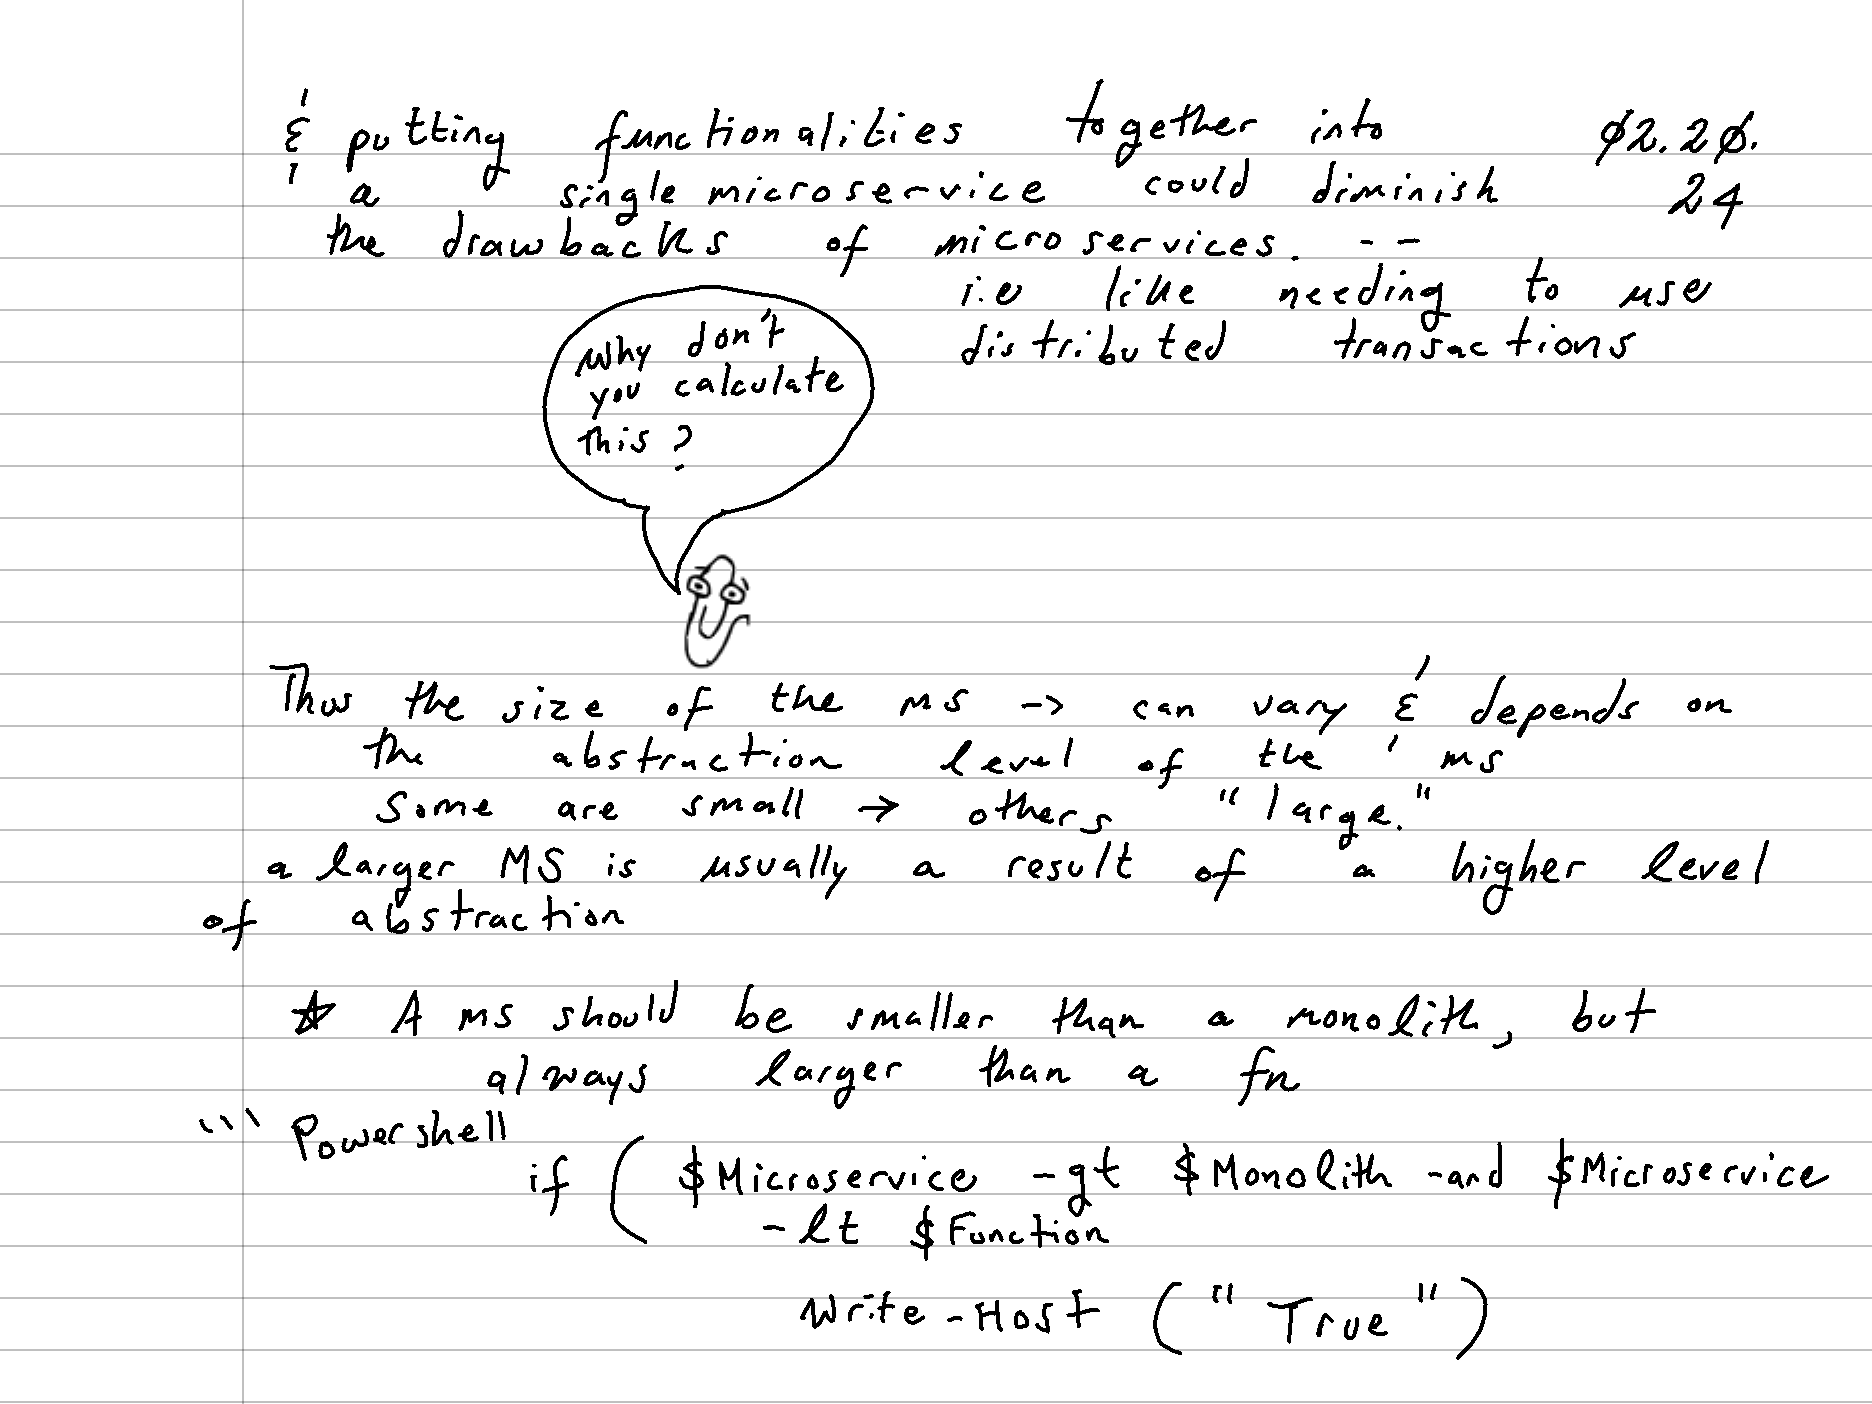 & putting functionalities together into
a single microservice could diminish
the drawbacks of microservices. --
i.e like needing to use
distributed transactions
02.20.
24
Why don't
you calculate
this?
Thus the size of the ms -> can vary & depends on
the abstraction level of the ms
Some are small → others "large."
a larger MS is usually a result of a higher level
of abstraction
☆ A ms should be smaller than a monolith, but
always larger than a fn
''' Powershell
if ( $Microservice -gt $Monolith -and $Microservice
-lt $Function
Write-Host ("True")